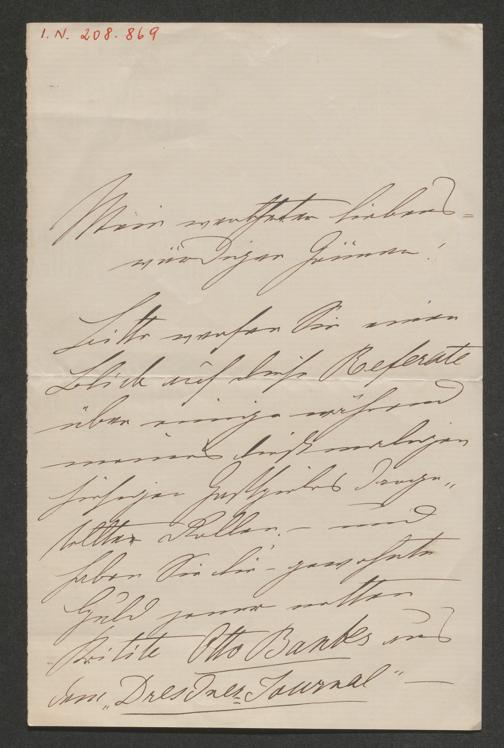 I. N. 208.869
Mein werthester liebens=
würdiger Gönner!
Bitte werfen Sie einen
Blick auf diese Referate
über einige während
meines dießmaligen
hiesigen Gastspieles darge„
stellter Rollen – und
haben Sie die – gewohnte
Huld jener netten
Kritik Otto Banks aus
dem „Dresdner Journal" –